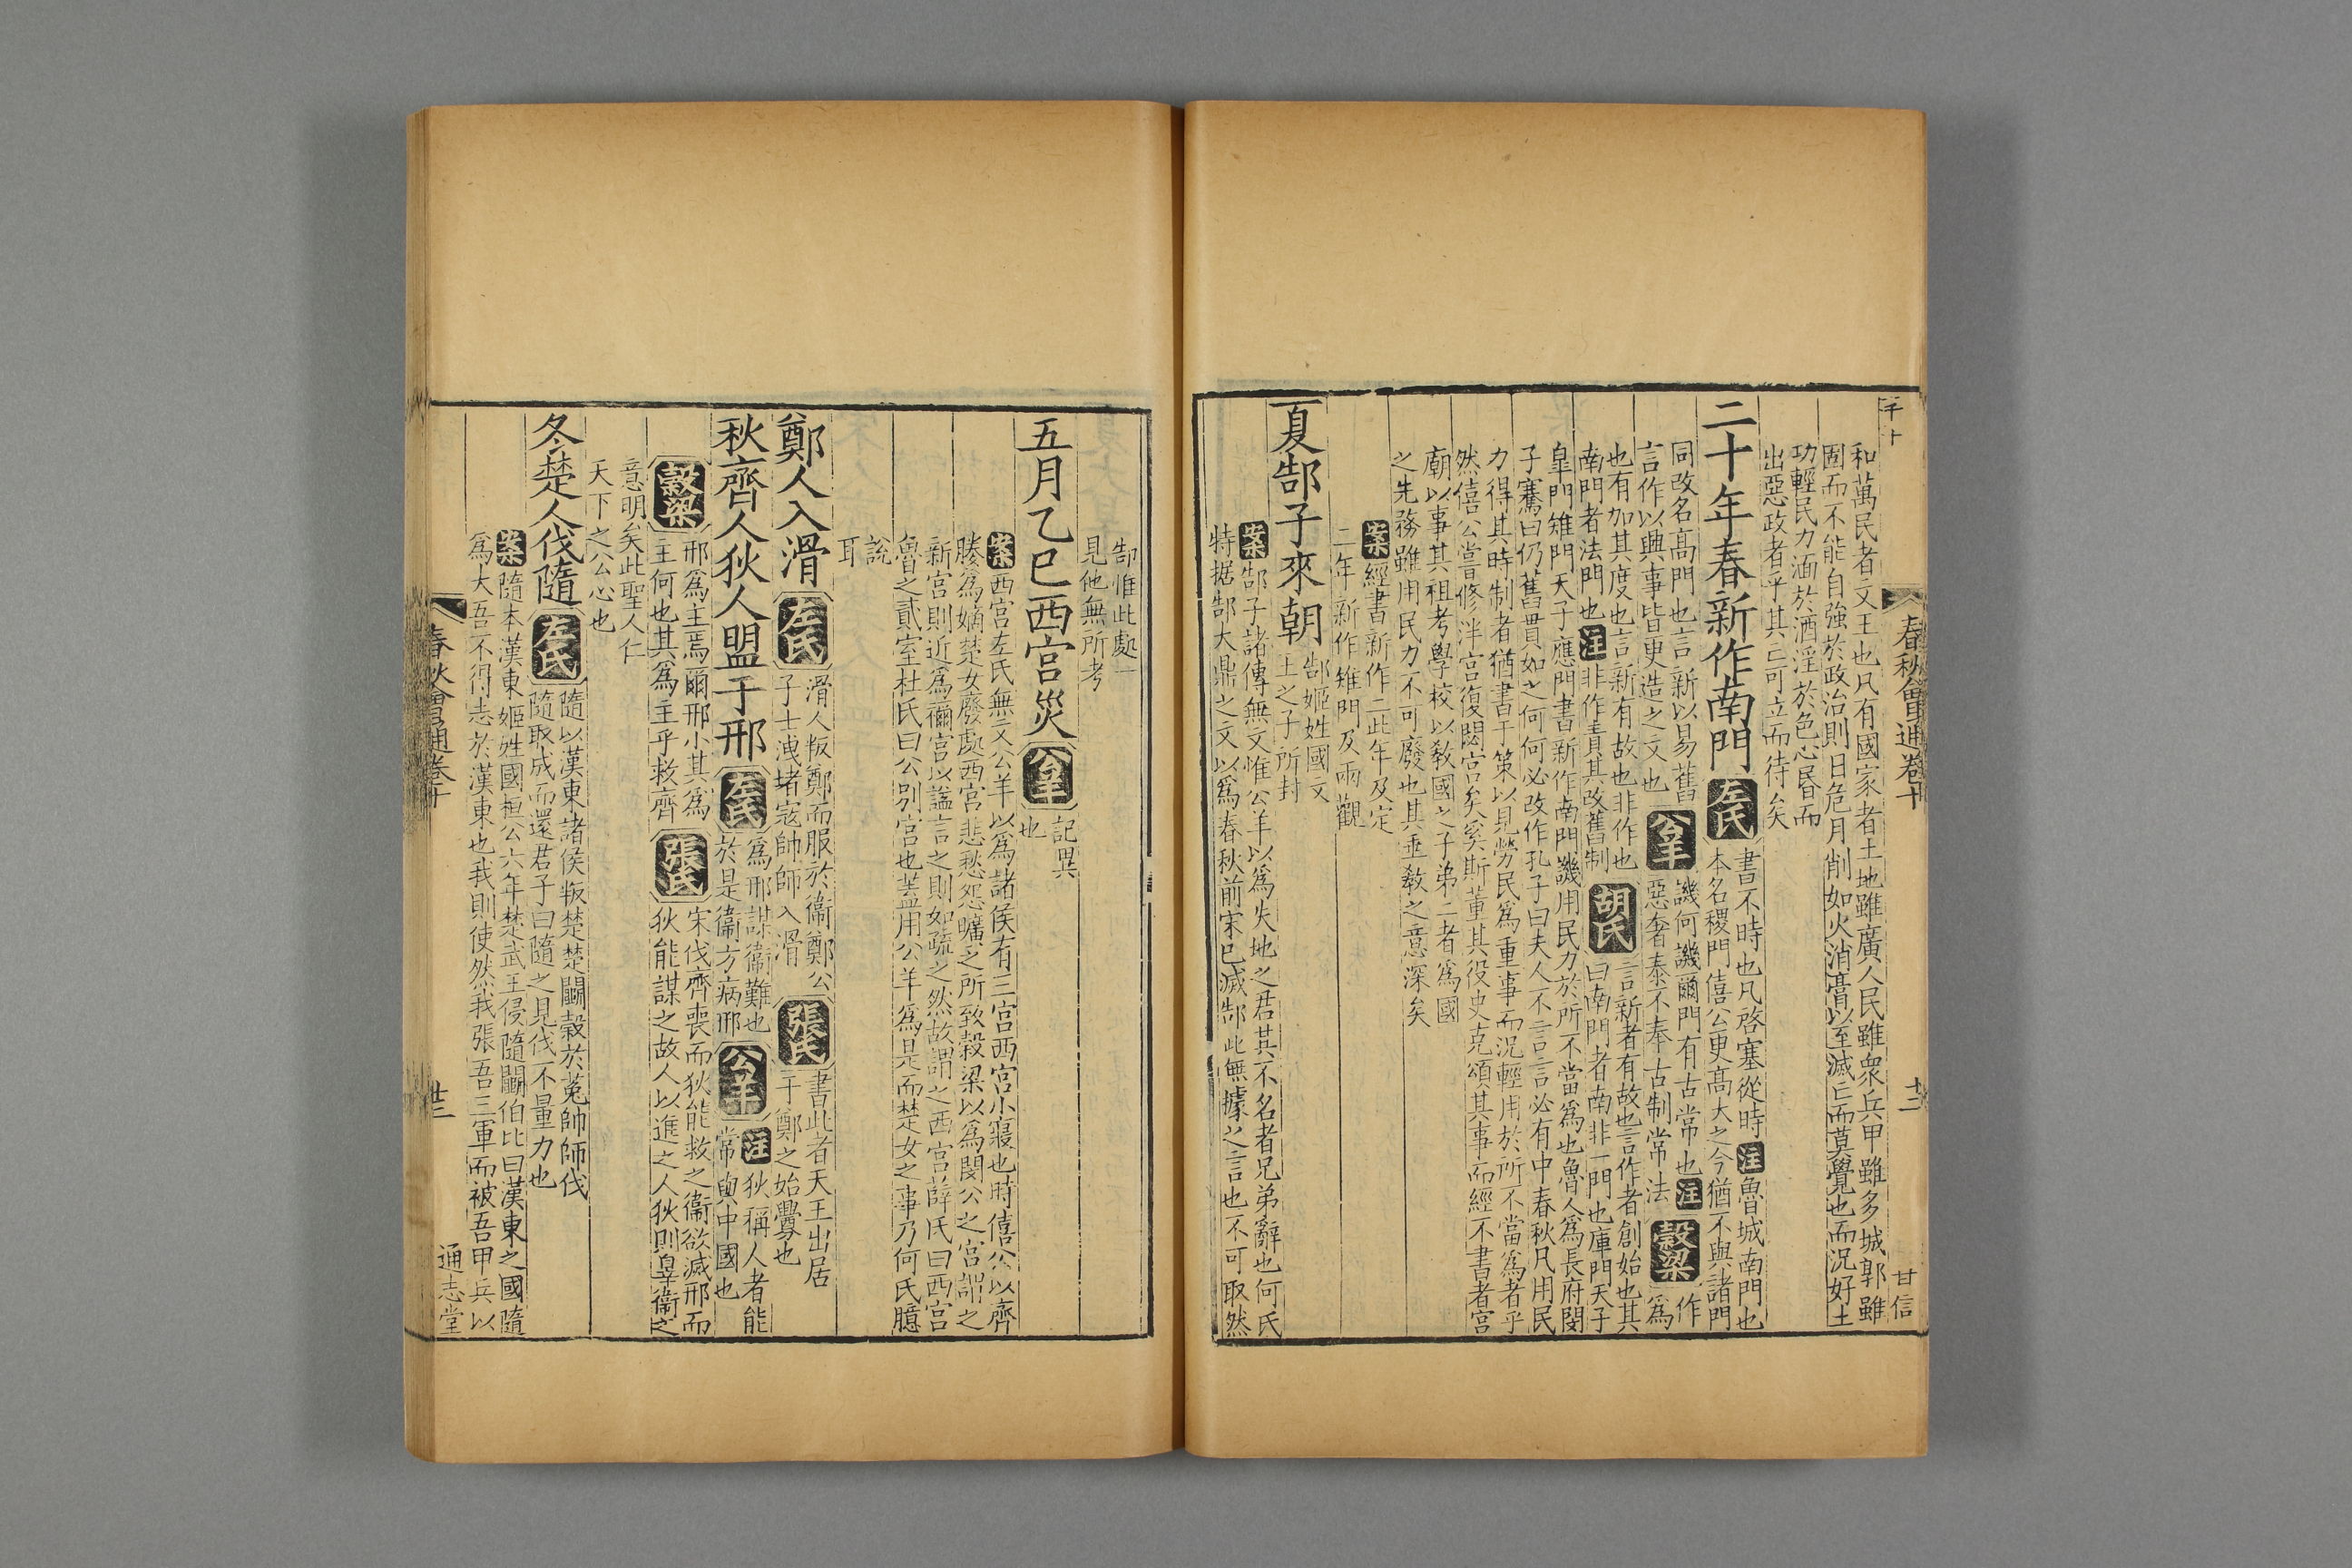 春秋會通卷十
十二
甘信
和萬民者文王也凡有國家者土地雖廣人民雖衆兵甲雖多城郭雖
固而不能自強於政治則日危月削如火消膏以至滅亡而莫覺也而況好土
功輕民力湎於酒淫於色心昬而
出惡政者乎其亡可立而待矣
二十年春新作南門
左氏
書不時也凡啓塞從時注魯城南門也
本名稷門僖公更高大之今猶不與諸門
同改名高門也言新以易舊
言作以興事皆更造之文也
公羊
譏何譏爾門有古常也注
惡奢泰不奉古制常法
穀梁
作
爲
也有加其度也言新有故也非作也
南門者法門也注非作責其改舊制
胡氏
言新者有故也言作者創始也其
曰南門者南非一門也庫門天子
臯門雉門天子應門書新作南門譏用民力於所不當爲也魯人爲長府閔
子騫曰仍舊貫如之何何必改作孔子曰夫人不言言必有中春秋凡用民
力得其時制者猶書于策以見勞民爲重事而況輕用於所不當爲者乎
然僖公嘗修泮宮復閟宮矣奚斯董其役史克頌其事而經不書者宮
廟以事其祖考學校以敎國之子弟二者爲國
之先務雖用民力不可廢也其垂敎之意深矣
案經書新作二此年及定
二年新作雉門及兩觀
夏郜子來朝
郜姬姓國文
王之子所封
案郜子諸傳無文惟公羊以爲失地之君其不名者兄弟辭也何氏
特据郜大鼎之文以爲春秋前宋已滅郜此無據之言也不可取然
郜惟此處一
見他無所考
五月乙巳西宮災
公羊
記異
也
案西宮左氏無文公羊以爲諸侯有三宮西宮小寢也時僖公以齊
媵爲嫡楚女廢處西宮悲愁怨曠之所致穀梁以爲閔公之宮謂之
新宮則近爲禰宮以謚言之則如疏之然故謂之西宮薛氏曰西宮
魯之貳室杜氏曰公別宮也葢用公羊爲是而楚女之事乃何氏臆
說
耳
鄭人入滑
左氏
滑人叛鄭而服於衞鄭公
子士洩堵寇帥師入滑
張氏
書此者天王出居
于鄭之始釁也
秋齊人狄人盟于邢
左氏
爲邢謀衞難也
於是衞方病邢
公羊
注狄稱人者能
常與中國也
穀梁
邢爲主焉爾邢小其爲
主何也其爲主乎救齊
張氏
宋伐齊喪而狄能救之衞欲滅邢而
狄能謀之故人以進之人狄則辠衞之
意明矣此聖人仁
天下之公心也
冬楚人伐隨
左氏
隨以漢東諸侯叛楚楚鬬穀於菟帥師伐
隨取成而還君子曰隨之見伐不量力也
案隨本漢東姬姓國桓公六年楚武王侵隨鬬伯比曰漢東之國隨
爲大吾不得志於漢東也我則使然我張吾三軍而被吾甲兵以
春秋會通卷十
廿二
通志堂